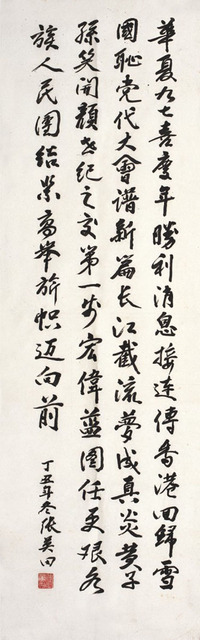 華夏九七喜慶年勝利消息接連傳香港回歸雪
國恥党代大會谱新篇长江截流夢成真炎黄子
孫笑開顏世纪之交第一步宏偉蓝图任更艰各
族人民團结紧高举旂帜迈向前
丁丑年冬张英田